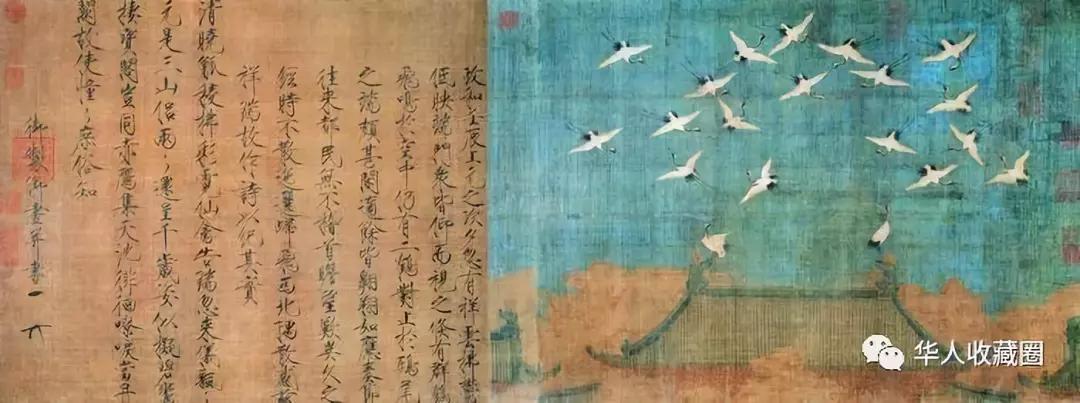 政和壬辰上元之次夕忽有祥雲拂鬱
低映端門衆皆仰而視之倏有群鶴
飛鳴於空中仍有二鶴對止於鴟尾
之端頗甚閑適餘皆翱翔如應奏節
往來都民無不稽首瞻望歎異久之
經時不散迤邐歸飛西北隅散感茲
祥瑞故作詩以紀其實
清曉觚稜拂彩霓仙禽告瑞忽來儀飄々
元是三山侶兩々還呈千歲姿似擬碧鸞
棲寶閣豈同赤鴈集天池徘徊嘹唳當丹
闕故使憧々庶俗知
御製御畫并書
华人收藏圈